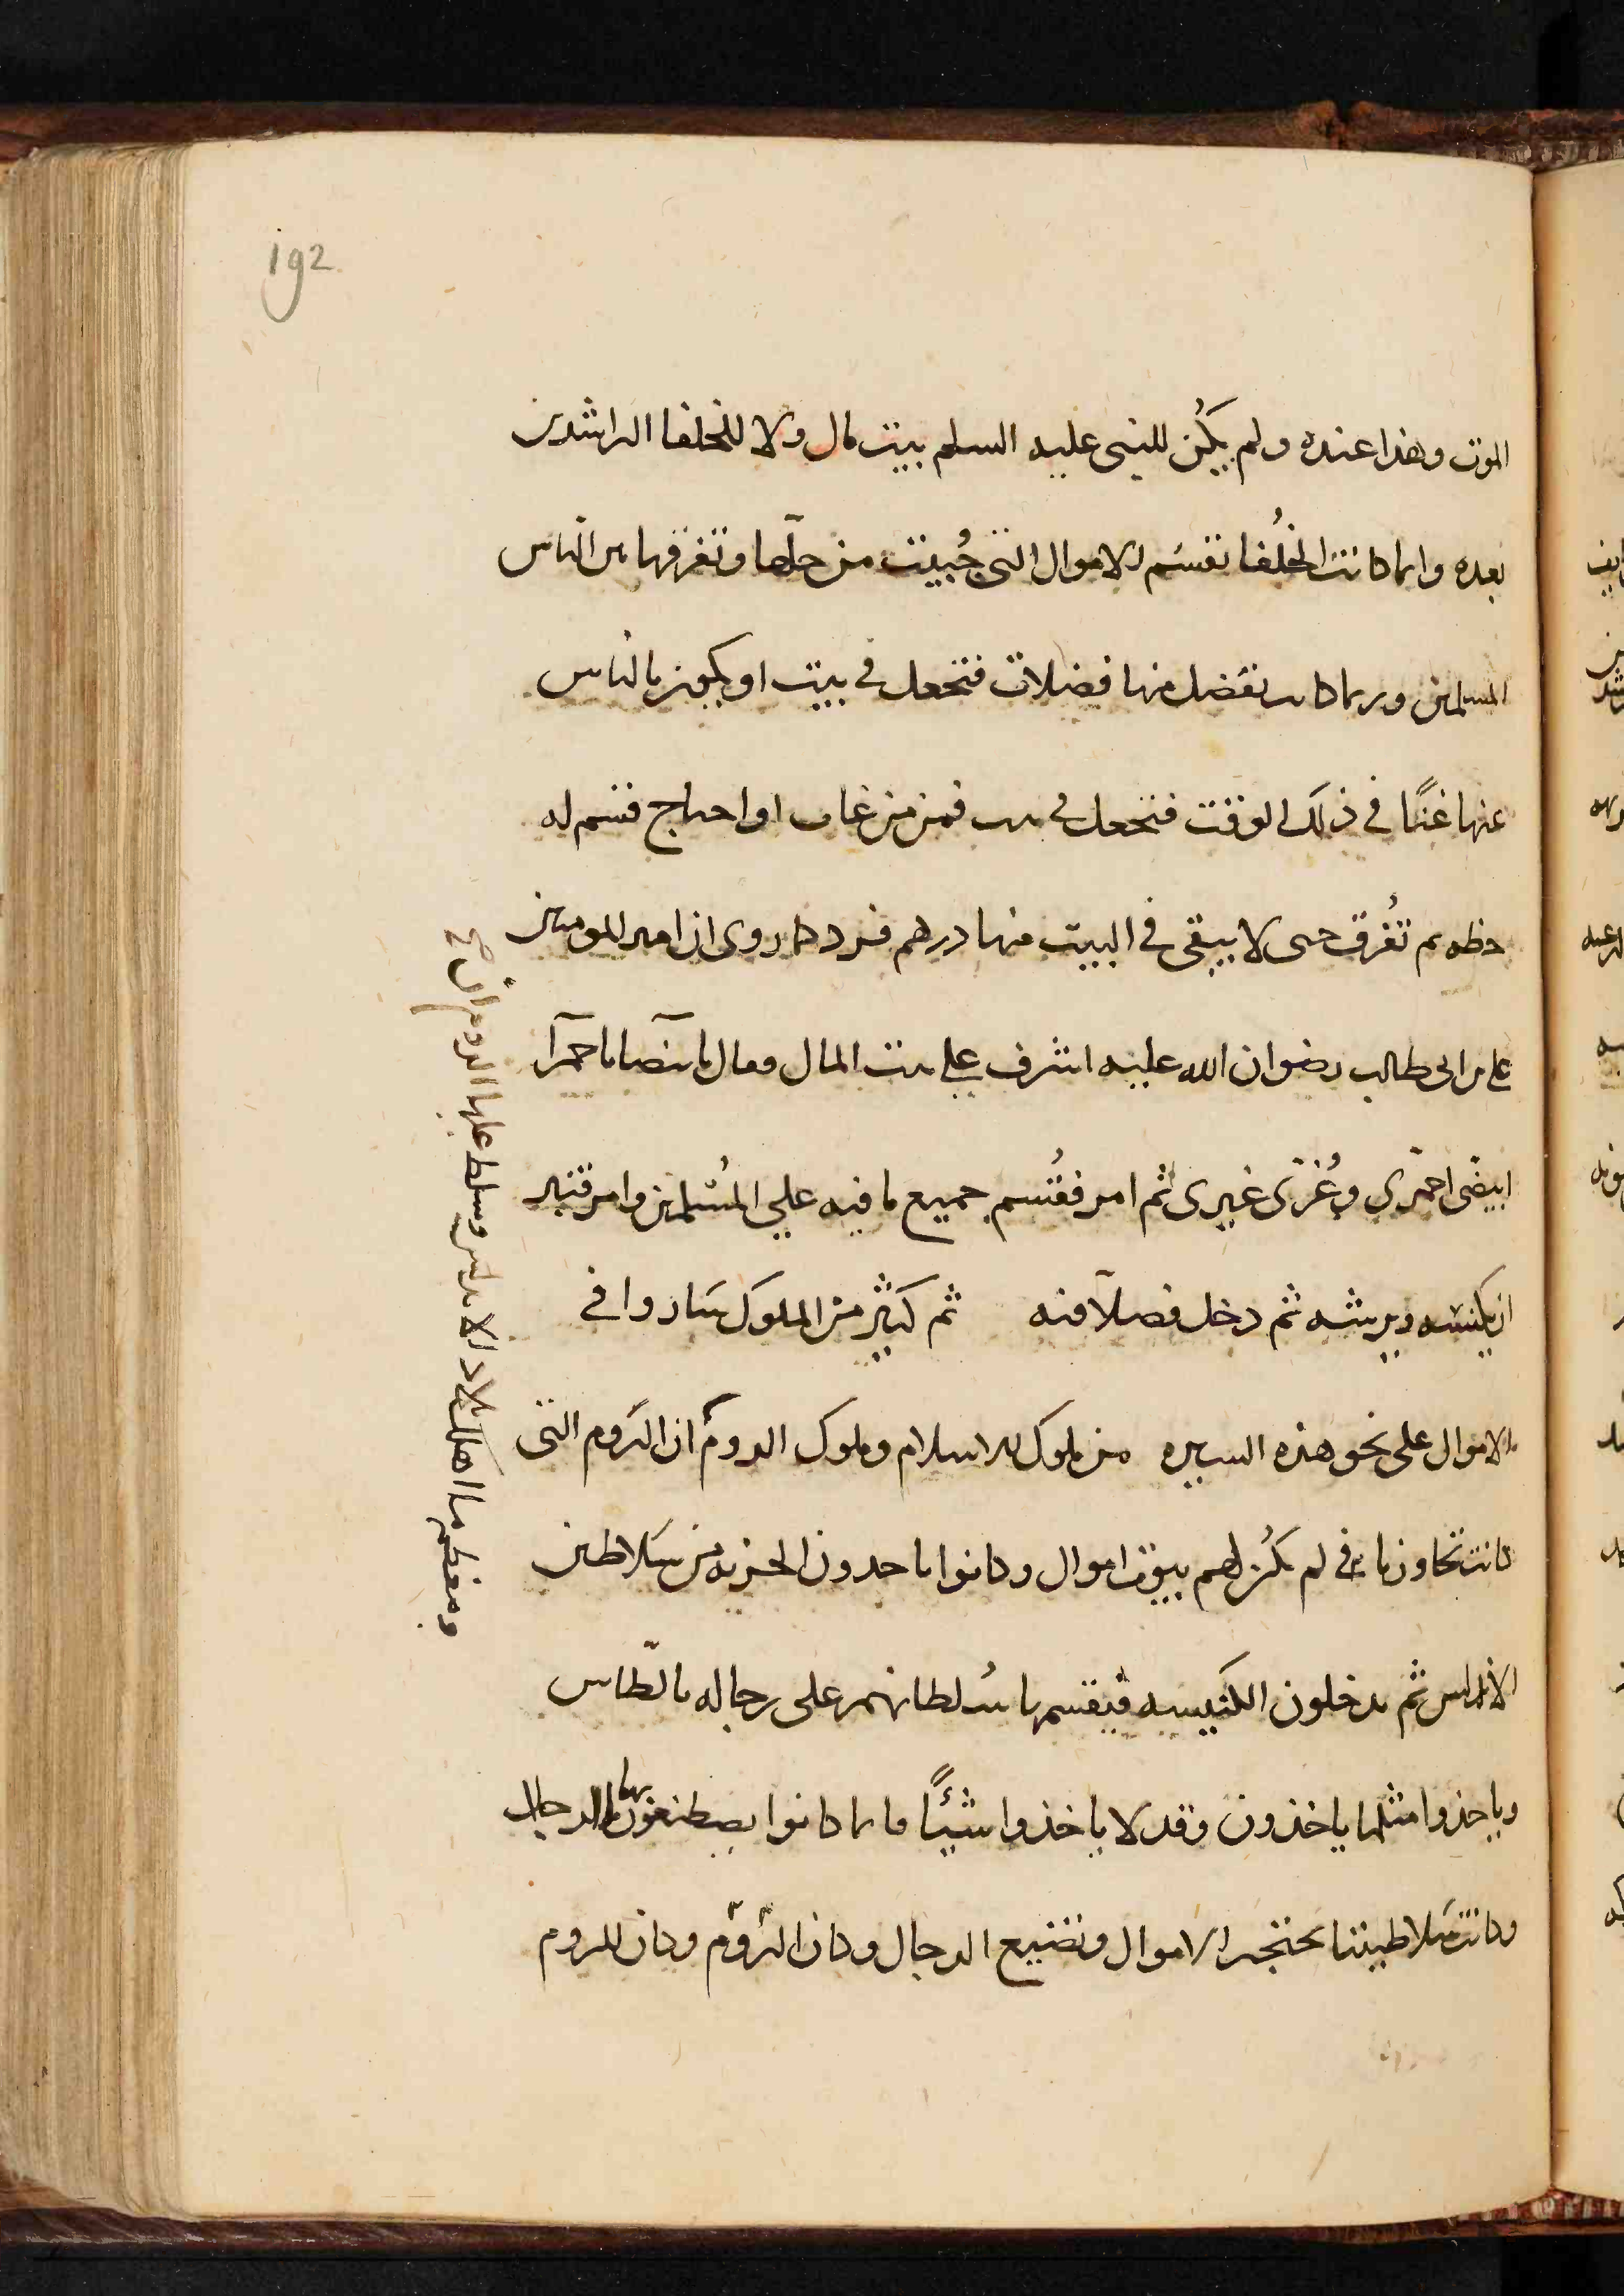 192
الموت وهذا عنده ولم يكُن للنبى عليه السلم بيت مال ولا للخلفا الراشدين
بعده وانما كانت الخلُفا تقسم الاموال التى جُبيت من حلّها وتفرقها بين الناس
المسلمين وربما كانت تفضل منها فضلات فتجعل فى بيت او يكون بالناس
عنها غنًا فى ذلك الوقت فتجعل فى بيت فمن من غاب او احتاج قسم له
حظه ثم تُفرق حتى لا يبقى فى البيت منها درهم فرد كما روى ان امير المومنين
على بن ابى طالب رضوان الله عليه اشرف على بيت المال وقال يا بيضا يا حمرآ
ابيضّى احمرّى وغُرّى غيرى ثم امر فقُسم جميع ما فيه على المُسلمين وامر قنبر
ان يكنسه ويرشه ثم دخل فصلّا فيه ثم كثير من الملوك سَاروا فى
الاموال على نحو هذه السيره من ملوك الاسلام وملوك الروم ان الروم التى
كانت تجاورنا فى لم يكُن لهم بيوت اموال وكانوا ياخدون الجزيه من سَلاطين
الاندلس ثم يدخلون الكنيسه فيقسمها سُلطانهم على رجاله بالطّاس
وياخذوا مثلما ياخذون وقد لا ياخذوا شيئًا وانما كانوا يصطنعون بها الرجال
وكانت سَلاطيننا تحتجر الاموال وتضيع الرجال وكان الرّوم وكان للروم
ومعظم ما اهلك بلاد الاندلس وسلط عليها الروم ان صح